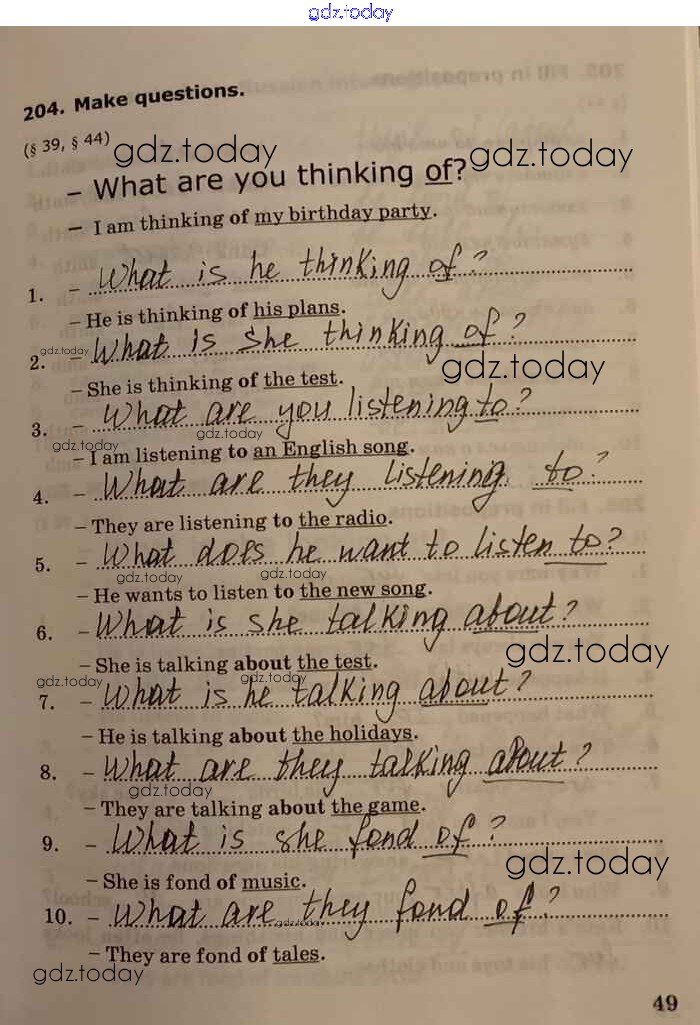 gdz.today
204. Make questions.
(§ 39, § 44) gdz.today
– What are you thinking of? gdz.today
– I am thinking of my birthday party.
1. – What is he thinking of?
– He is thinking of his plans.
2. gdz.today – What is she thinking of?
gdz.today
– She is thinking of the test.
3. – What are you listening to?
gdz.today gdz.today
– I am listening to an English song.
4. – What are they listening to?
– They are listening to the radio.
5. – What does he want to listen to?
gdz.today gdz.today
– He wants to listen to the new song.
6. – What is she talking about?
gdz.today
– She is talking about the test.
gdz.today gdz.today
7. – What is he talking about?
– He is talking about the holidays.
8. – What are they talking about?
gdz.today
– They are talking about the game.
9. – What is she fond of?
gdz.today
– She is fond of music.
10. – What are they fond of?
gdz.today
– They are fond of tales.
gdz.today
49